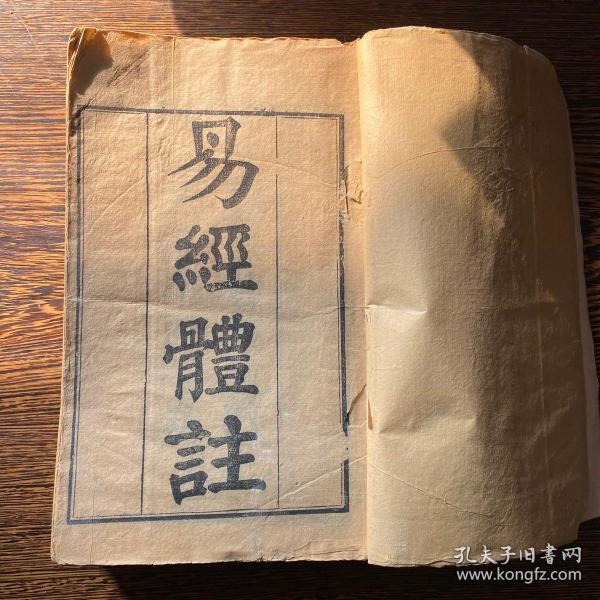 易經體註
孔夫子旧書网
www.kongfz.com